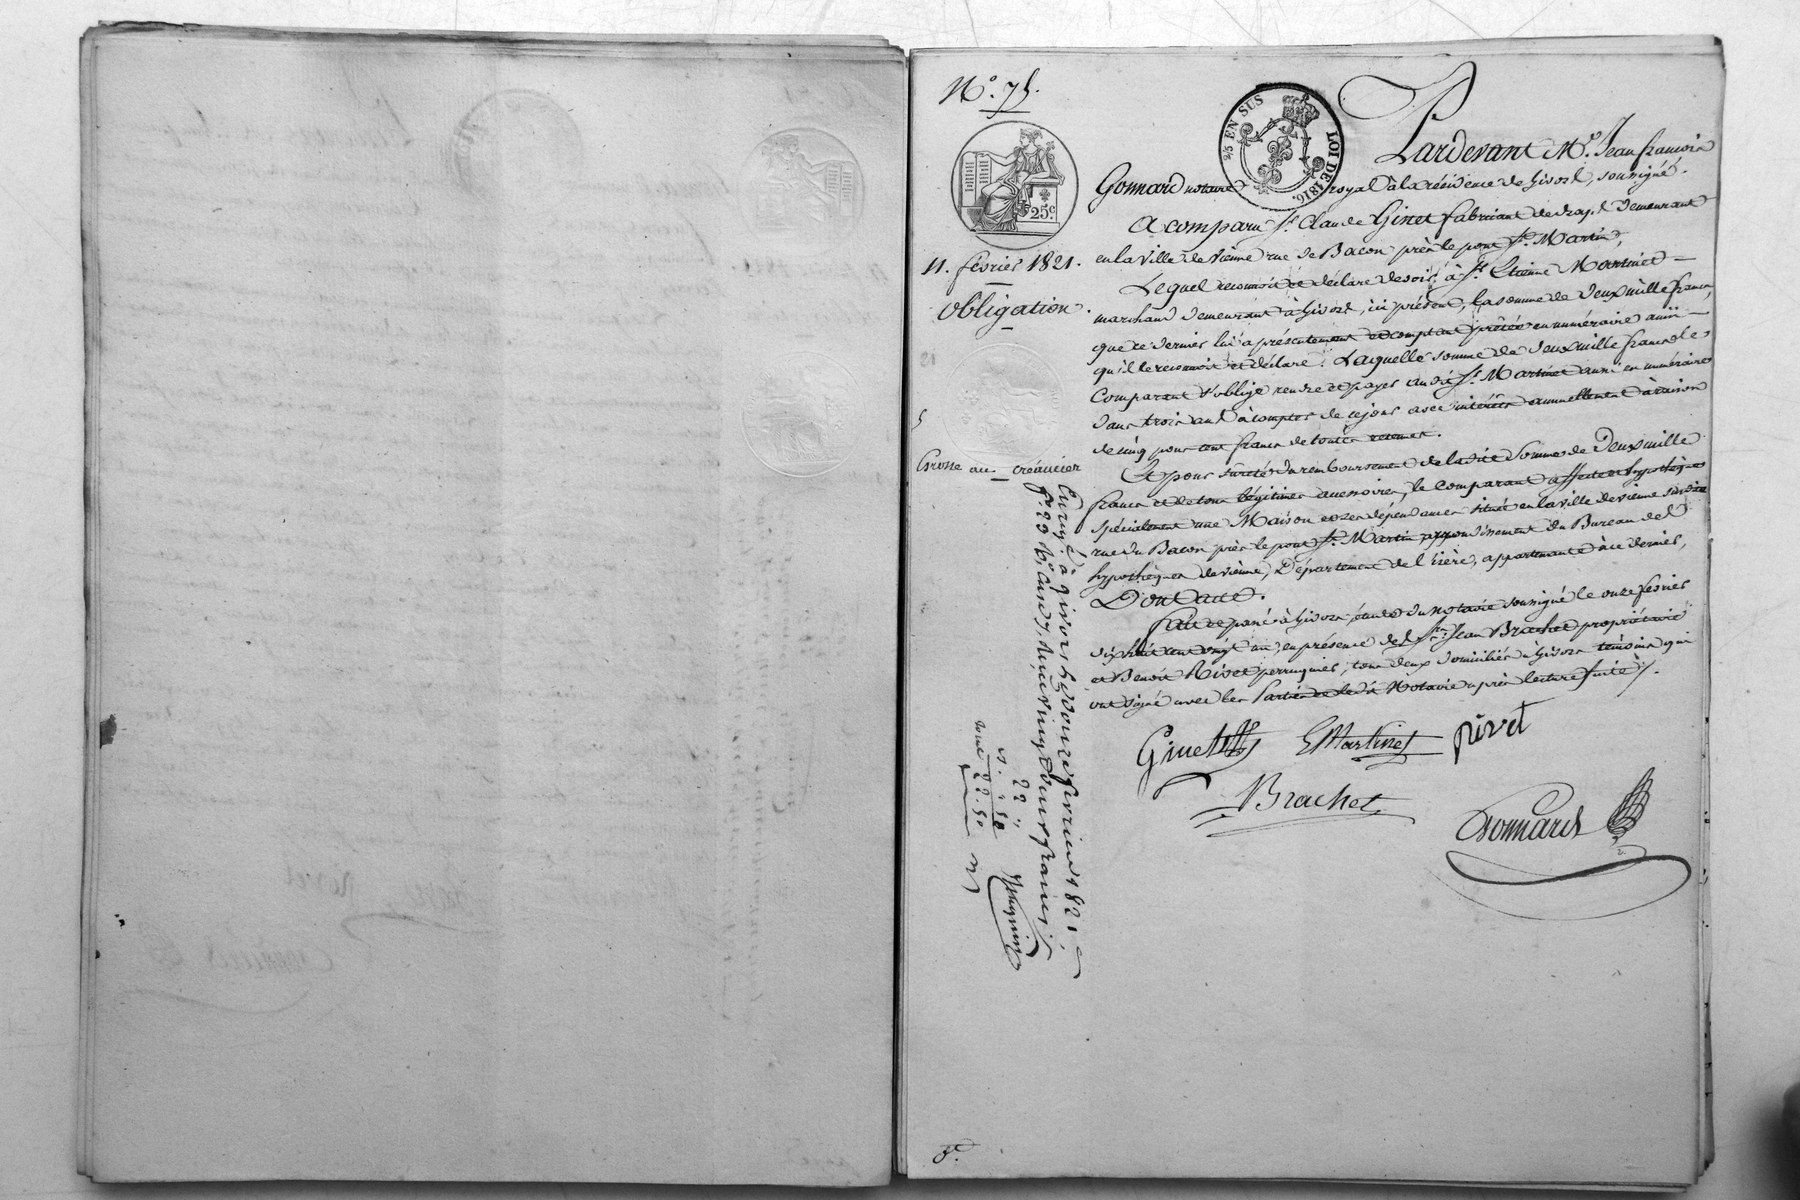 N.° 75.
25c.
2/5 EN SUS
LOI DE 1816.
11. fevrier 1821.
Obligation.
Grosse au créancier
Pardevant M.e Jean françois
Gonnard notaire royal à la résidence de Givors, soussigné.
A comparu S.r Claude Ginet fabricant de drap, demeurant
en la ville de vienne rue de Bacon près le pont S.t Martin,
Lequel reconnoit et déclare devoir à S.r Etienne Martinet
marchand demeurant à Givors, ici présent, la somme de deux mille francs,
que ce dernier lui a présentement et comptant prêtée en numéraire ainsi
qu'il le reconnoit et déclare. Laquelle somme de deux mille francs le
Comparant s'oblige rendre et payer audit S.r Martinet aussi en numéraire
dans trois ans à compter de ce jour avec intérêts annuellement à raison
de cinq pour cent francs de toutes retenues.
Et pour sureté du remboursement de ladite somme de Deux mille
francs et de tous légitimes accessoires, le comparant affecte et hypothèque
spécialement une Maison et ses dépendances située en la ville de vienne susdite
rue du Bacon près le pont S.t Martin arrondissement du Bureau des
hypothèques de vienne, Département de l'Isère, appartenante à ce dernier,
Dont acte.
fait et passé à Givors, étude du notaire soussigné le onze fevrier
dix huit cent vingt un, en présence des S.rs Jean Brachet propriétaire
et Benoit Rivet perruquier, tous deux domiciliés à Givors témoins qui
ont signé avec les Parties et le dit Notaire après lecture faite.
Ginet EMartinet rivet
Brachet
Gonnard
Enreg.é à givors le douze fevrier 1821
f.° 23 R.° Case 7, reçu vingt deux francs
22 "
22.50